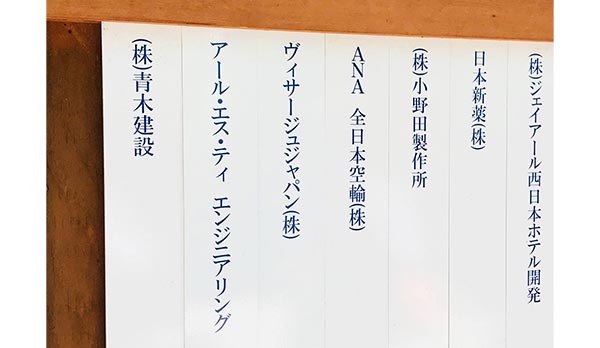 (株)ジェイアール西日本ホテル開発
日本新薬(株)
(株)小野田製作所
ANA 全日本空輸(株)
ヴィサージュジャパン(株)
アール・エス・ティ エンジニアリング
(株)青木建設